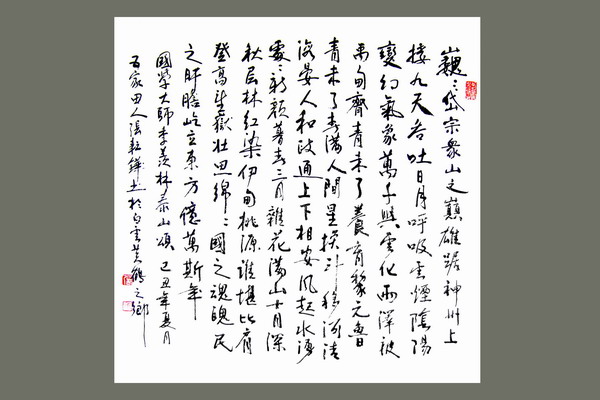 巍々岱宗眾山之巔雄踞神州上
接九天吞吐日月呼吸雲煙陰陽
變幻氣象萬千興雲化雨澤被
禹甸齊青未了養育黎元魯
青未了春滿人間星換斗移河清
海晏人和政通上下相安風起水湧
處新顏暮春三月雜花滿山十月深
秋层林紅染伊甸桃源誰堪比肩
登高望嶽壯思綿々國之魂魄民
之肝膽屹立東方億萬斯年
國學大師季羡林泰山頌 己丑年夏月
田人張書於白雲黃鶴之鄉